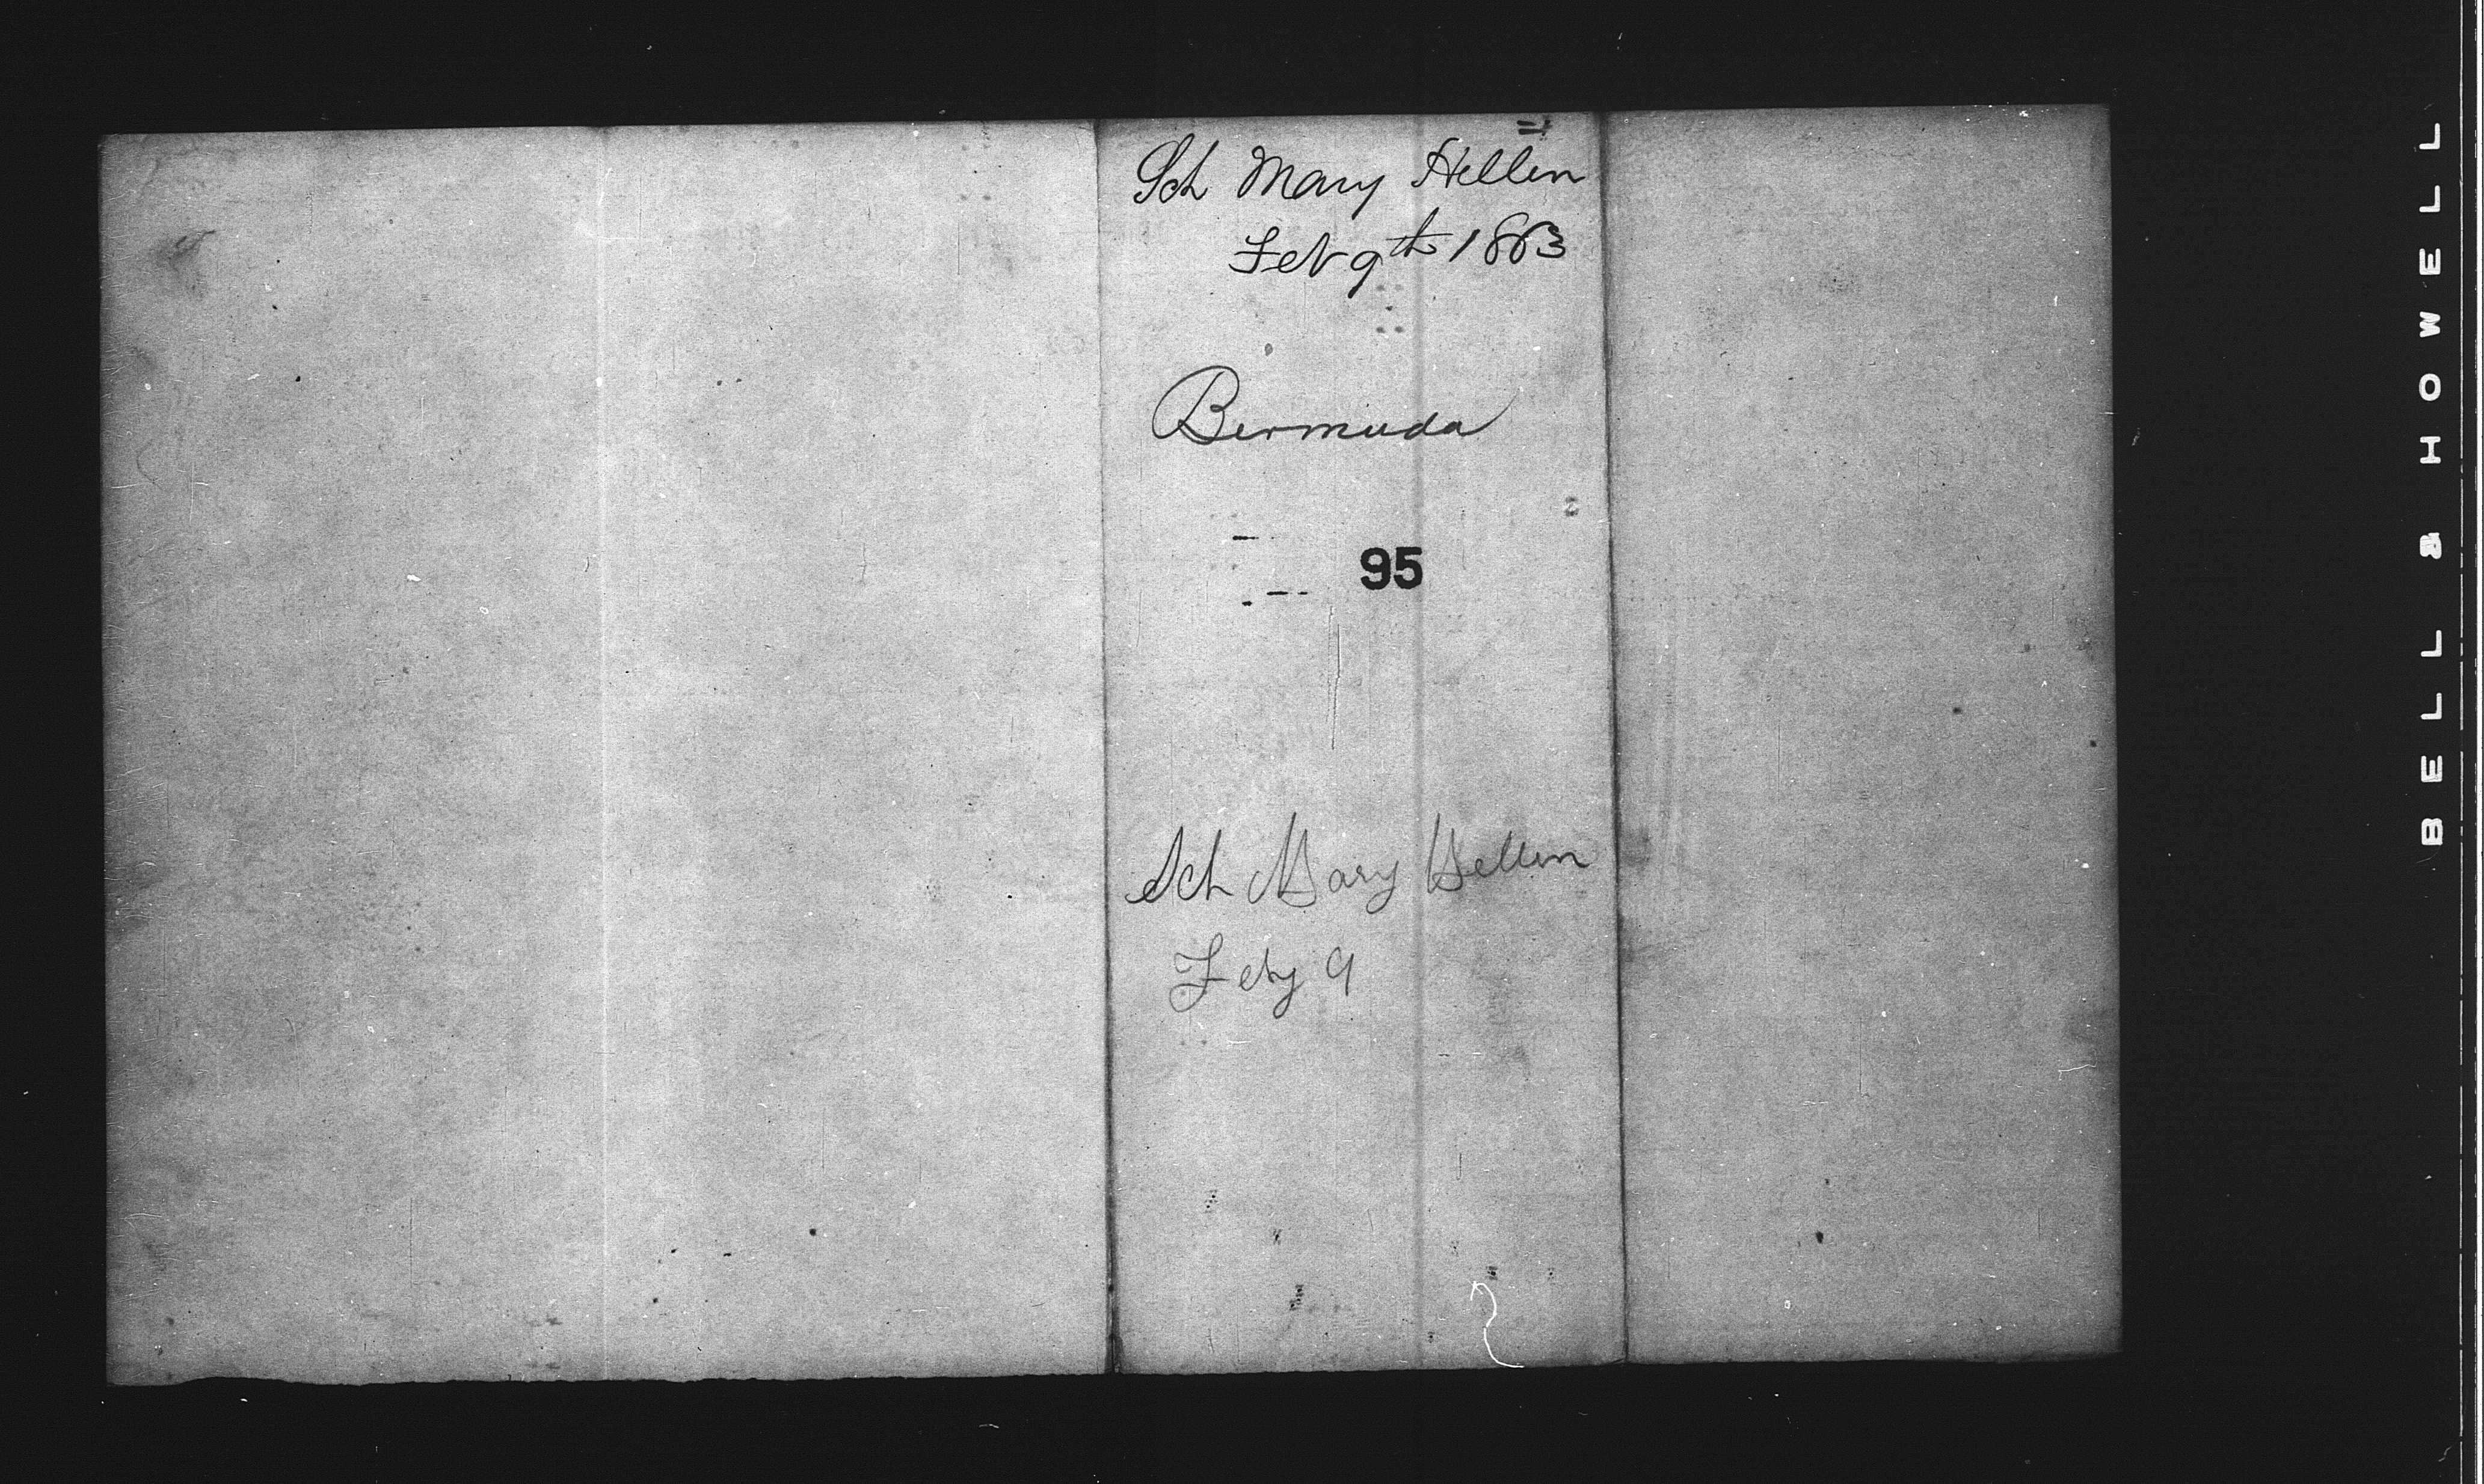 Sch Mary Hellen
Feb 9th 1863
Bermuda
95
Sch Mary Hellen
Feby 9
BELL & HOWELL